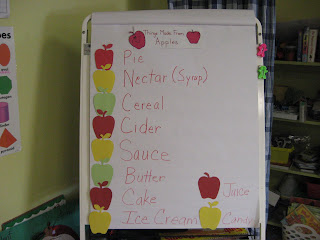 Things Made From
Apples
Pie
Nectar (Syrup)
Cereal
Cider
Sauce
Butter
Cake
Juice
Ice Cream
Candy